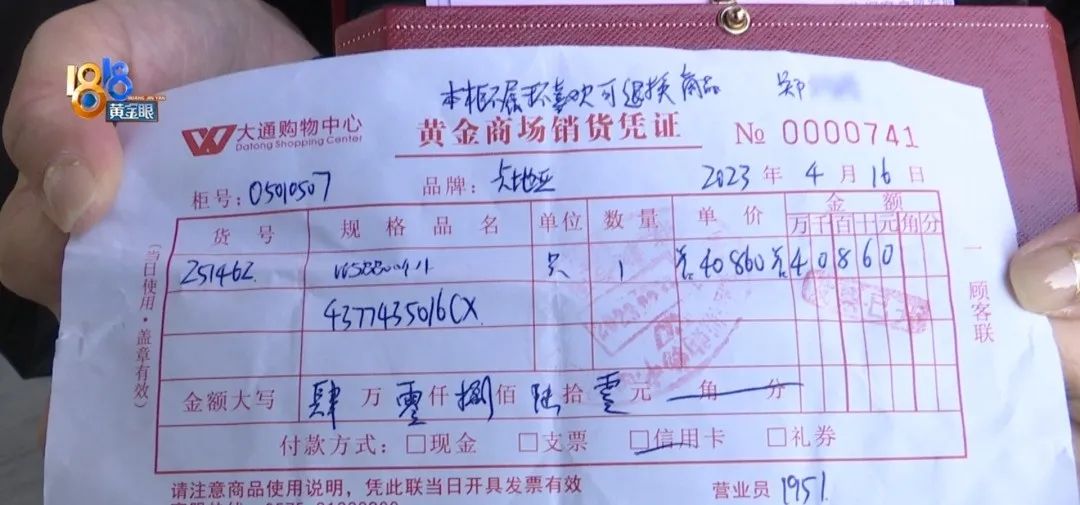 1818
HUANG JIN YAN
黄金眼
本柜不属不喜欢可退换商品 郑
大通购物中心
Datong Shopping Center
黄金商场销货凭证
№ 0000741
柜号:05010507
品牌:
2023年4月16日
货号 规格品名 单位 数量 单价 金额
万千百十元角分
251462 只 1 40860 40860
4377435016CX
金额大写 肆万零仟捌佰陆拾零元 角 分
付款方式:□现金 □支票 □信用卡 □礼券
请注意商品使用说明,凭此联当日开具发票有效
营业员 1951
(当日使用·盖章有效)
一 顾客联